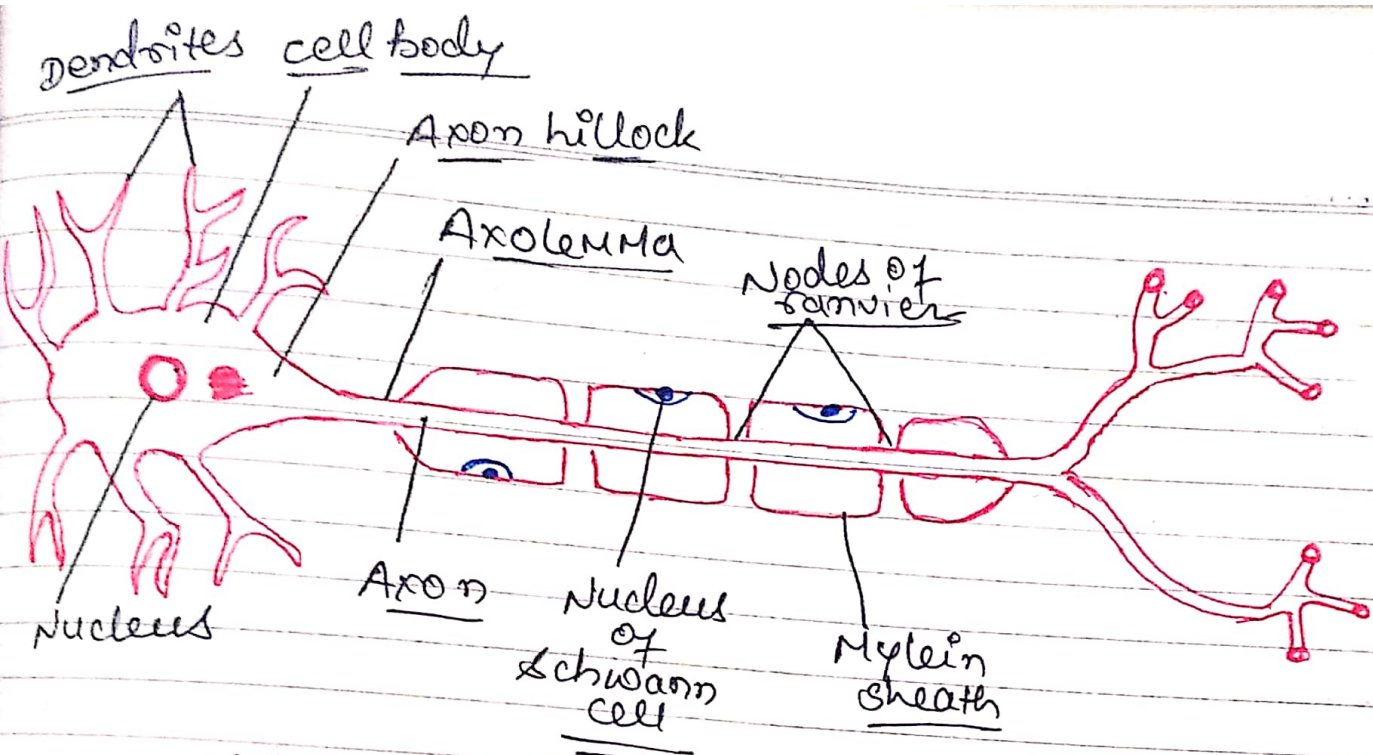 Dendrites cell body
Axon hillock
Axolemma
Nodes of
ranvier
Axon
Nucleus
of
Schwann
cell
Nucleus
Mylein
sheath